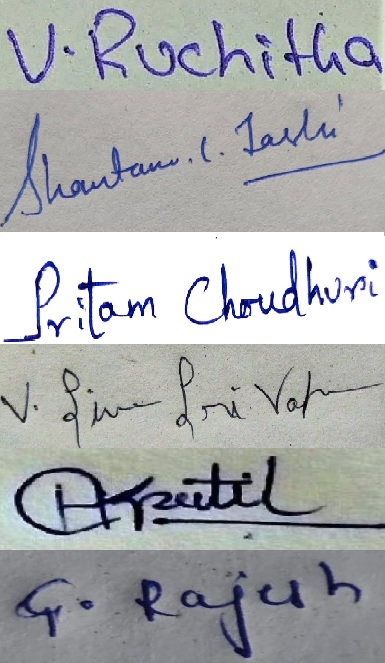 V. Ruchitha
Shantanu. C. Jashi
Pritam Choudhuri
V. Sri
Kpatil
G. Rajesh